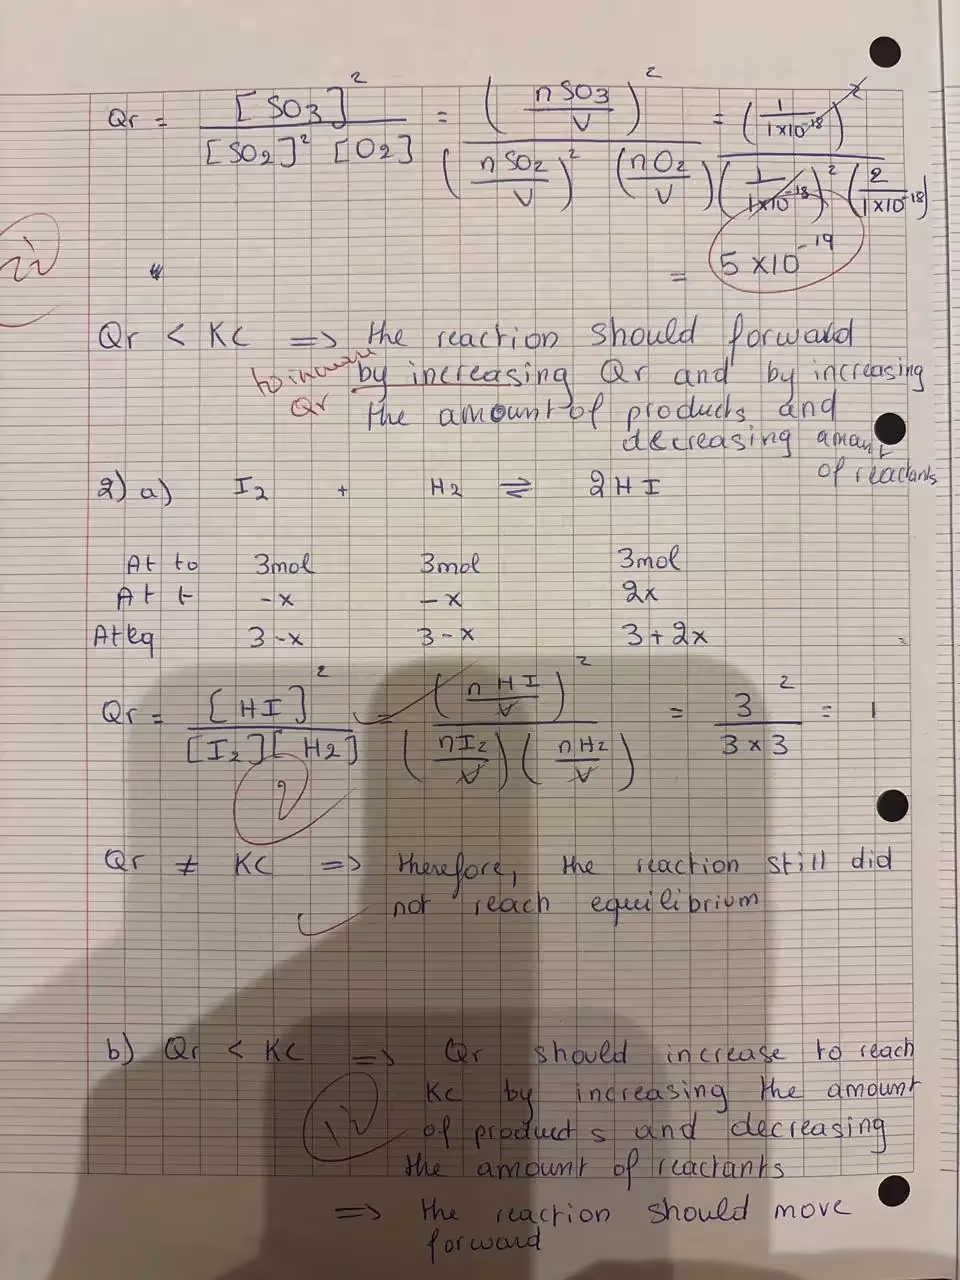 Qr = [SO3]² / [SO2]² [O2] = (nSO3/V)² / (nSO2/V)² (nO2/V) = (1/1x10⁻¹⁸)² / (1/1x10⁻¹⁸)² (2/1x10⁻¹⁸)
= 5 x10⁻¹⁹
Qr < Kc => the reaction should forward
to increase by increasing Qr and by increasing
Qr the amount of products and
decreasing amount
of reactants
2) a) I2 + H2 ⇌ 2HI
At to 3mol 3mol 3mol
At t -x -x 2x
At Eq 3-x 3-x 3+2x
Qr = [HI]² / [I2][H2] = (nHI/V)² / (nI2/V)(nH2/V) = 3² / 3x3 = 1
2
Qr ≠ Kc => therefore, the reaction still did
not reach equilibrium
b) Qr < Kc => Qr should increase to reach
Kc by increasing the amount
of products and decreasing
the amount of reactants
=> the reaction should move
forward